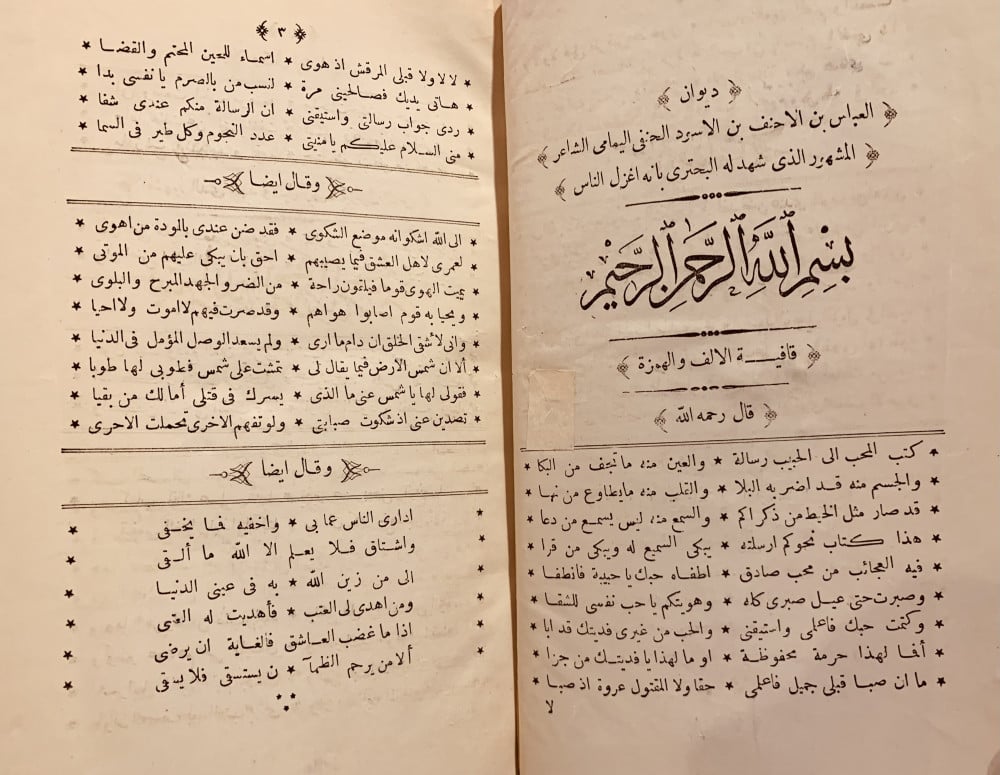 ديوان
العباس بن الاحنف بن الاسود الحنفى اليمامى الشاعر
المشهور الذى شهد له البحترى بانه اغزل الناس
بسم الله الرحمن الرحيم
قافيـة الالف والهمزة
قال رحمه الله
★ كتب المحب الى الحبيب رسالة ★ والعين منه ما تجف من البكا ★
★ والجسم منه قد اضر به البلا ★ والقلب منه ما يطاوع من نها ★
★ قد صار مثل الخيط من ذكراكم ★ والسمع منه ليس يسمع من دعا ★
★ هذا كتاب نحوكم ارسلته ★ يبكى السميع له ويبكى من قرا ★
★ فيه العجائب من محب صادق ★ اطفاه حبك يا حبيبة فانطفا ★
★ وصبرت حتى عيل صبرى كله ★ وهويتكم يا حب نفسى للشقا ★
★ وكتمت حبك فاعلمى واستيقنى ★ والحب من غيرى فديتك قد ابا ★
★ أفما لهذا حرمة محفوظة ★ او ما لهذا يا فديتك من جزا ★
★ ما ان صبا قبلى جميل فاعلمى ★ حقا ولا المقتول عروة اذ صبا ★
لا
٣
★ لا لا ولا قبلى المرقش اذ هوى ★ اسماء للحين المحتم والقضا ★
★ هاتى يديك فصالحينى مرة ★ لنسب من بالصرم يا نفسى بدا ★
★ ردى جواب رسالتى واستيقنى ★ ان الرسالة منكم عندى شفا ★
★ منى السلام عليكم يا منيتى ★ عدد النجوم وكل طير فى السما ★
وقال ايضا
★ الى الله اشكو انه موضع الشكوى ★ فقد ضن عندى بالمودة من اهوى ★
★ لعمرى لاهل العشق فيما يصيبهم ★ احق بان يبكى عليهم من الموتى ★
★ يميت الهوى قوما فيلقون راحة ★ من الضر والجهد المبرح والبلوى ★
★ ويحيا به قوم اصابوا هواهم ★ وقد صرت فيهم لا اموت ولا احيا ★
★ وانى لأشقى الخلق ان دام ما ارى ★ ولم يسعد الوصل المؤمل فى الدنيا ★
★ ألا ان شمس الأرض فيما يقال لى ★ تمشت على شمس فطوبى لها طوبا ★
★ فقولى لها يا شمس عنى ما الذى ★ يسرك فى قتلى أما لك من بقيا ★
★ تصدين عنى اذ شكوت صبابتى ★ ولو تفهم الاخرى تحملت الاحرى ★
وقال ايضا
★ ادارى الناس عما بى ★ واخفيه فما يخفى ★
★ واشتاق فلا يعلم الا الله ما ألقى ★
★ الى من زين الله ★ به فى عينى الدنيا ★
★ ومن اهدى لى العتب ★ فأهديت له العتبى ★
★ اذا ما غضب العاشق فالغاية ان يرضى ★
★ ألا من يرحم الظمآ ★ ن يستسقى فلا يسقى ★